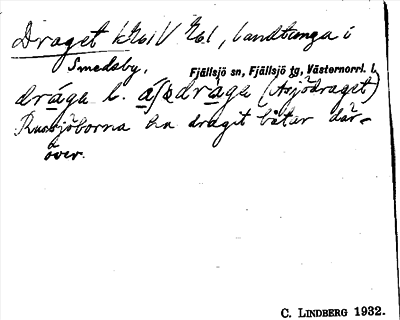 Draget, landtunga i
Smedsby, Fjällsjö sn, Fjällsjö tg, Västernorrl. l.
dråga l. åsjödråga (Åsjödraget)
Russjöborna ha dragit båtar där-
över.
C. LINDBERG 1932.